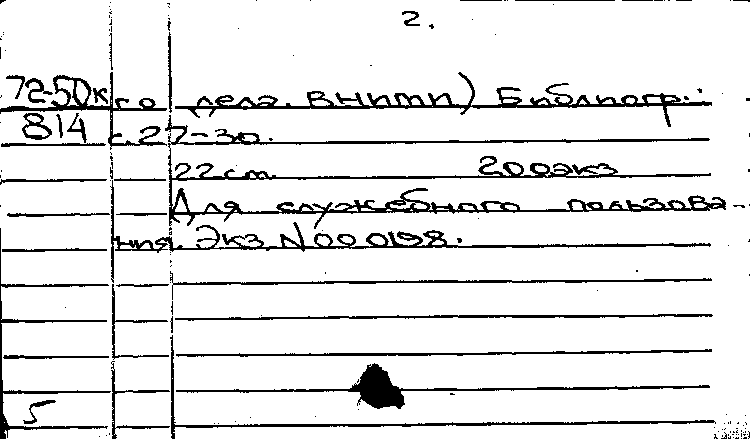 2.
72-50к го дела. ВНИТИ) Библиогр.:
814 с. 27-30.
22 см. 200 экз
Для служебного пользова-
ния. Экз. N 000198.
5